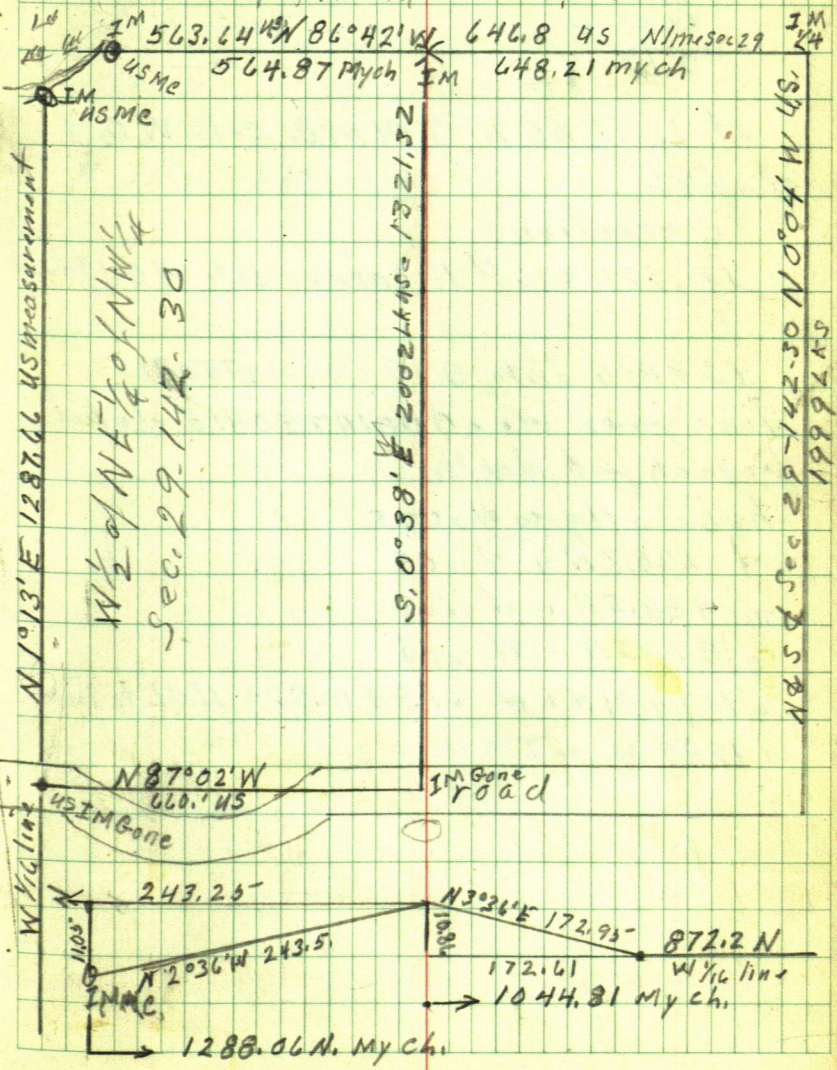 IM 563.64 US N 86°42' W 646.8 US N line sec 29 IM 1/4
US MC 564.87 My ch IM 648.21 my ch
IM
US MC
N 1°13' E 1287.06 US measurement
W 1/2 of NE 1/4 of NW 1/4
Sec. 29-142-30
S. 0°38' E W 2002 Lks US = 1321.32
N & S 1/4 Sec 29-142-30 N 0°04' W US.
1999 Lks
N 87°02' W
660.' US
IM Gone
road
US IM Gone
W 1/16 line
243.25
N 3°36' E 172.95
11.05
10.86
872.2 N
N 2°36' W 243.5
172.61
W 1/16 line
IM MC.
1044.81 My ch.
1288.06 N. My ch.